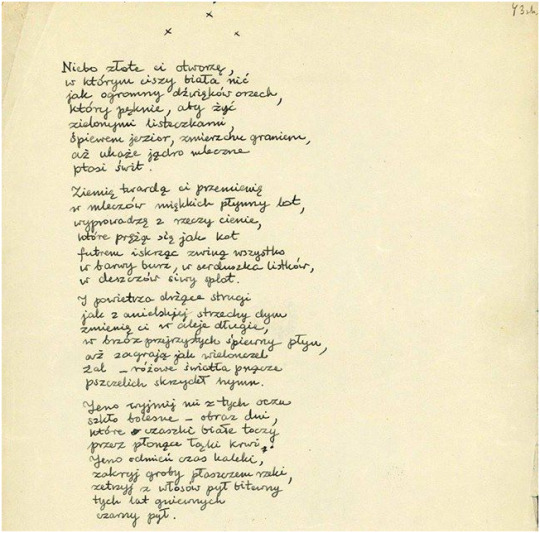 43 r.
x
x x
Niebo złote ci otworzę,
w którym ciszy biała nić
jak ogromny dźwięków orzech,
który pęknie, aby żyć
zielonymi listeczkami,
śpiewem jezior, zmierzchu graniem,
aż ukaże jądro mleczne
ptasi świt.
Ziemię twardą ci przemienię
w mleczów miękkich płynny lot,
wyprowadzę z rzeczy cienie,
które prężą się jak kot
futrem iskrząc zwiną wszystko
w barwy burz, w serduszka listków,
w deszczów siwy splot.
I powietrza drżące strugi
jak z anielskiej strzechy dym
zmienię ci w aleje długie,
w brzóz przejrzystych śpiewny płyn,
aż zagrają jak wiolonczel
żal – różowe światła pnącze
pszczelich skrzydeł hymn.
Jeno wyjmij mi z tych oczu
szkło bolesne – obraz dni,
które czaszki białe toczy
przez płonące łąki krwi.
Jeno odmień czas kaleki,
zakryj groby płaszczem rzeki,
zetrzyj z włosów pył bitewny
tych lat gniewnych
czarny pył.